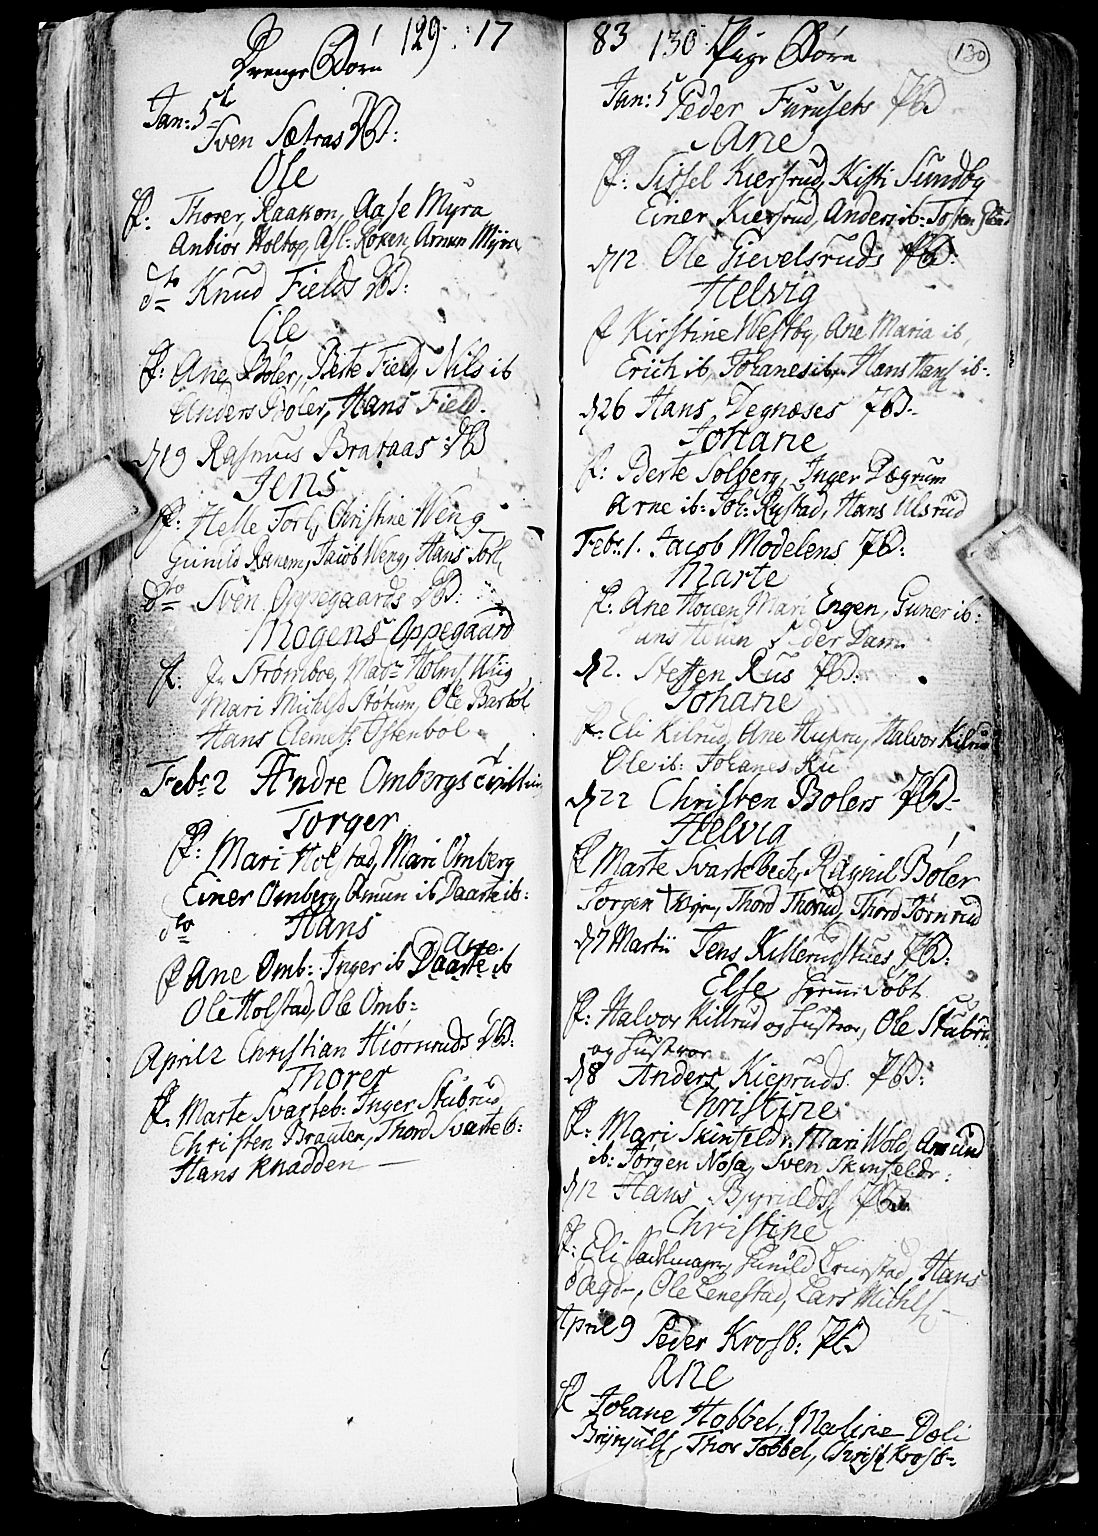 129. 17
Drenge Børn
Jan: 5t
Sven Sætras DB:
Ole
f: Thorer, Raakon, Aase Myra
Anbiør Holtop, Asl: Roken, Amun Myra
dto Knud Fields DB:
Ole
f: Ane Bøler, Berte Field, Nils ib
Anders Bøler, Hans Field.
d 19 Rasmus Brataas DB
Jens
f: Helle Torl, Christine Weng
Gunild Ranem, Jacob Weng, Hans Torl
dto Sven Oppegaards DB:
Mogens Oppegaard
f: Fr Strømboe, Mad Holm, Wiig
Mari Michels Støtum, Ole Barbøl
Hans Clemets. Østenbøl
Febr 2 Andre Ombergs
Torger
f: Mari Holstad, Mari Omberg
Einer Omberg, Amun ib Daarte ib:
dto Hans
Ane
f Ane Omb: Inger ib Daarte ib
Ole Holstad, Ole Omb:
April 2 Christian Hiørnruds DB:
Thorer
f: Marte Svarteb: Inger Stubrud
Christen Braaten, Thord Svarteb:
Hans Knadden —
83 130 Pige Børn
130
Jan: 5 Peder Furusets PB
Ane
f: Sissel Kiersrud, Kisti Sundby
Einer Kiersrud, Anders ib: Tosten
d 12 Ole Gievelsruds PB:
Helvig
f Kirstine Westby, Ane Maria ib,
Erich ib Johanes ib, Hans Hans ib-
d 26 Hans Degnæses PB-
Johane
f: Berte Solberg, Inger Dægrum
Arne ib: Joh: Rustad, Hans Ulsrud
Febr. 1. Jacob Modelens PB:
Marte
f: Ane Houen Mari Engen, Guner ib:
Peder Dam
d 2. Steffen Rus PB.
Johane
f: Eli Kilrud, Ane Hupru, Halvor Kilrud
Ole ib: Johanes Ru
d 22 Christen Bølers PB-
Helvig
f Marte Svartebech, Ragnil Bøler
Jørgen Wiger, Thord Thorud, Thord Tørnrud
d 7 Martii Jens Killerudstues PB:
Else hjemdøbt
f: Halvor Killrud og hustroe, Ole Stubrud
og hustroe
d 8 Anders Kiepruds PB:
Christine
f: Mari Skinfeldr: Mari Wold, Amund
ib: Jørgen Nosa, Sven Skinfeldr:
d 12 Hans Byrulds PB
Christine
f: Eli Sadelmager, Gunild Lenestad, Hans
Ole Lenestad, Lars Michels
April 9 Peder Krosb: PB
Ane
f Johane Habbel, Maline Dæli
Brynjulf, Thor Tobbel, Christ Krosb-